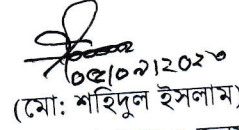 ০৫/০৭/২০২০
(মো: শহিদুল ইসলাম)